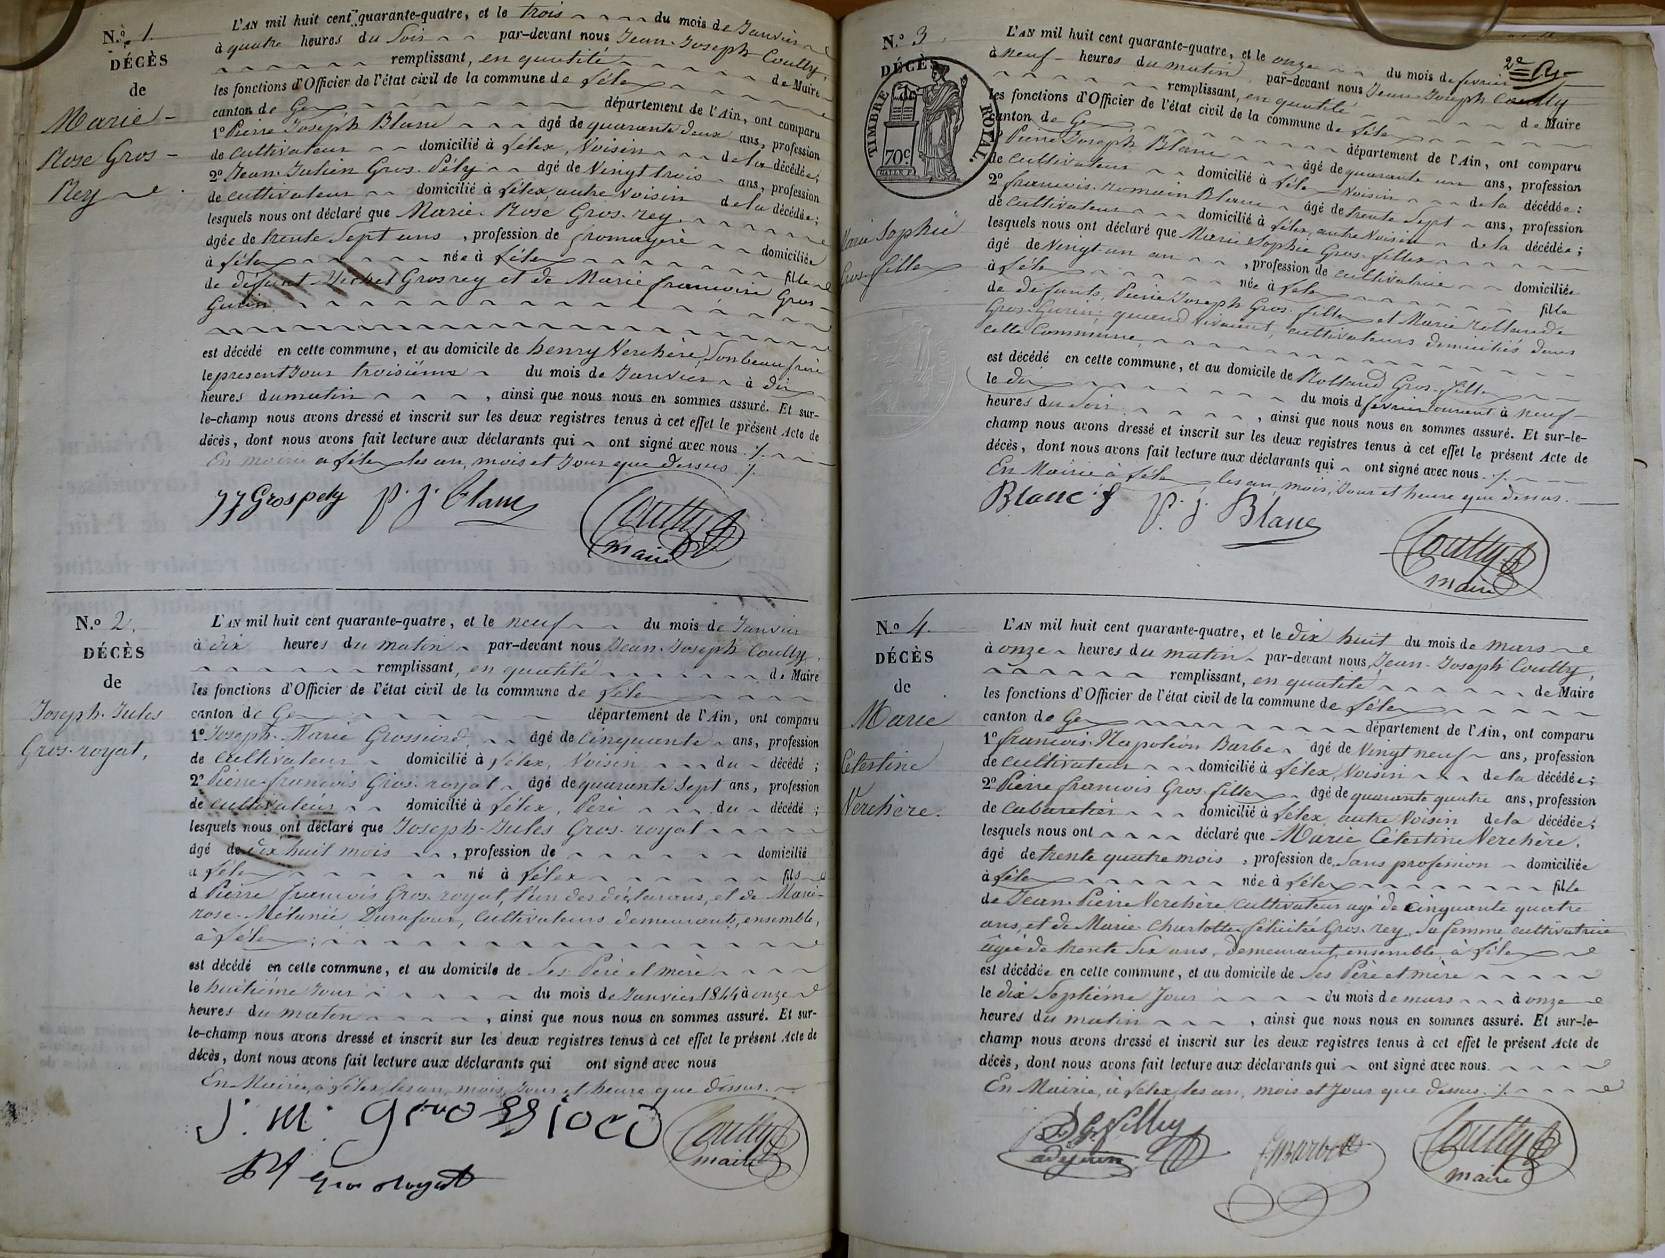 N.o 1.
DÉCÈS
de
Marie-
Rose Gros-
Rey
L'AN mil huit cent quarante-quatre, et le trois du mois de Janvier
à quatre heures du Soir par-devant nous Jean-Joseph Coutty,
remplissant, en quatité de Maire
les fonctions d'Officier de l'état civil de la commune de Lélex
canton de Gex département de l'Ain, ont comparu
1º Pierre Joseph Blanc âgé de quarante deux ans, profession
de cultivateur domicilié à Lélex, Voisin de la décédée;
2º Jean-Julien Gros-Pély âgé de Vingt trois ans, profession
de cultivateur domicilié à Lélex, autre Voisin de la décédée;
lesquels nous ont déclaré que Marie-Rose Gros-rey
âgée de trente Sept ans, profession de fromagère domiciliée
à Lélex née à Lélex fille
de défunt Michel Grosrey et de Marie françoise Gros-
Gurin
est décédé en cette commune, et au domicile de henry Verchère, Son beau frère
le present Jour troisième du mois de Janvier à dix
heures du matin, ainsi que nous nous en sommes assuré. Et sur-
le-champ nous avons dressé et inscrit sur les deux registres tenus à cet effet le présent Acte de
décès, dont nous avons fait lecture aux déclarants qui ont signé avec nous
En mairie a Lélex les an, mois et Jour que dessus
JJ Grospely P. J. Blanc Coutty
maire
N.o 2.
DÉCÈS
de
Joseph-Jules
Gros-royat,
L'AN mil huit cent quarante-quatre, et le neuf du mois de Janvier
à dix heures du matin par-devant nous Jean-Joseph Coutty,
remplissant, en quatité de Maire
les fonctions d'Officier de l'état civil de la commune de Lélex
canton de Gex département de l'Ain, ont comparu
1º Joseph-Marie Grossiord, âgé de Cinquante ans, profession
de cultivateur domicilié à Lélex, Voisin du décédé;
2º Pierre françois Gros-royat âgé de quarante Sept ans, profession
de cultivateur domicilié à Lélex, Père du décédé;
lesquels nous ont déclaré que Joseph-Jules Gros-royat
âgé de dix huit mois, profession de domicilié
à Lélex né à Lélex fils
d Pierre françois Gros-royat, l'un des déclarans, et de Marie-
rose-Mélanie Durafour, cultivateurs demeurants, ensemble,
à Lélex;
est décédé en cette commune, et au domicile de Ses Père et mère
le huitième Jour du mois de Janvier 1844 à onze
heures du matin, ainsi que nous nous en sommes assuré. Et sur-
le-champ nous avons dressé et inscrit sur les deux registres tenus à cet effet le présent Acte de
décès, dont nous avons fait lecture aux déclarants qui ont signé avec nous
En Mairie, à Lélex, les an, mois, Jour et heure que dessus.
J. M. Grossiord Coutty
maire
Gros Royat
2e
N.o 3.
DÉCÈS
TIMBRE ROYAL
70c
Marie Sophie
Gros-fillex
L'AN mil huit cent quarante-quatre, et le onze du mois de fevrier
à neuf heures du matin par-devant nous Jean-Joseph Coutty
remplissant, en quatité de Maire
les fonctions d'Officier de l'état civil de la commune de Lélex
canton de Gex département de l'Ain, ont comparu
Pierre Joseph Blanc âgé de quarante un ans, profession
de cultivateur domicilié à Lélex Voisin de la décédée;
2º françois-romain Blanc âgé de trente Sept ans, profession
de cultivateur domicilié à Lélex, autre Voisin de la décédée;
lesquels nous ont déclaré que Marie Sophie Gros-fillex
âgé de Vingt un an, profession de cultivatrice domiciliée
à Lélex née à Lélex fille
de defunts, Pierre Joseph Gros-fillex et Marie rollande
Gros-Gurin, quand vivaient, cultivateurs domiciliés dans
cette Commune,
est décédé en cette commune, et au domicile de Rolland Gros-fillex
le dix du mois d fevrier courant à neuf
heures du Soir, ainsi que nous nous en sommes assuré. Et sur-le-
champ nous avons dressé et inscrit sur les deux registres tenus à cet effet le présent Acte de
décès, dont nous avons fait lecture aux déclarants qui ont signé avec nous
En Mairie à Lélex les an, mois, Jour et heure que dessus.
Blanc f P. J. Blanc
Coutty
maire
N.o 4.
DÉCÈS
de
Marie
Célestine
Verchère.
L'AN mil huit cent quarante-quatre, et le dix huit du mois de mars
à onze heures du matin par-devant nous, Jean-Joseph Coutty,
remplissant, en quatité de Maire
les fonctions d'Officier de l'état civil de la commune de Lélex
canton de Gex département de l'Ain, ont comparu
1º françois-Napoléon Barbe âgé de Vingt neuf ans, profession
de cultivateur domicilié à Lélex, Voisin de la décédée;
2º Pierre françois Gros-fillex âgé de quarante quatre ans, profession
de Cabaretier domicilié à Lélex, autre Voisin de la décédée;
lesquels nous ont déclaré que Marie Célestine Verchère,
âgé de trente quatre mois, profession de, Sans profession domiciliée
à Lélex née à Lélex fille
de Jean-Pierre Verchère, cultivateur agé de Cinquante quatre
ans, et de Marie Charlotte félicitée Gros-rey, sa femme cultivatrice
agée de trente Six ans, demeurant, ensemble, à Lélex
est décédée en cette commune, et au domicile de Ses Père et mère
le dix Septiéme Jour du mois de mars à onze
heures du matin, ainsi que nous nous en sommes assuré. Et sur-le-
champ nous avons dressé et inscrit sur les deux registres tenus à cet effet le présent Acte de
décès, dont nous avons fait lecture aux déclarants qui ont signé avec nous
En Mairie, à Lélex, les an, mois et Jour que dessus.
adjoint Coutty
maire